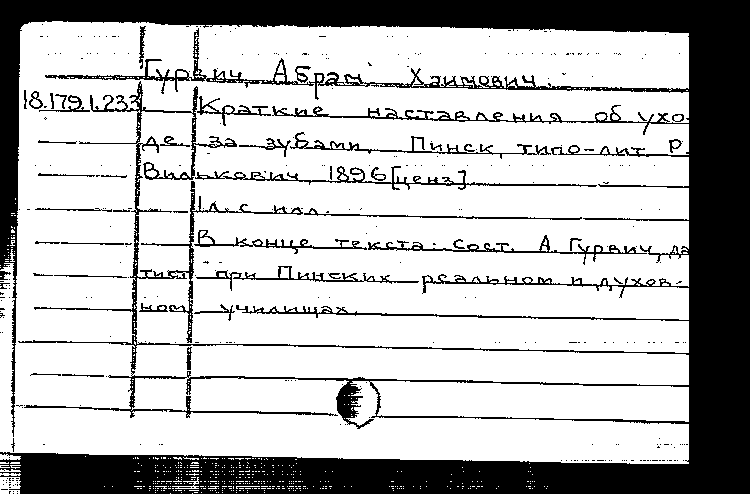 Гурвич, Абрам Хаимович.
18.179.1.233. Краткие наставления об ухо-
де за зубами. Пинск, типо-лит. Р.
Вилькович, 1896 [ценз].
1 л. с илл.
В конце текста: сост. А. Гурвич, да
тист при Пинских реальном и духов-
ном училищах.